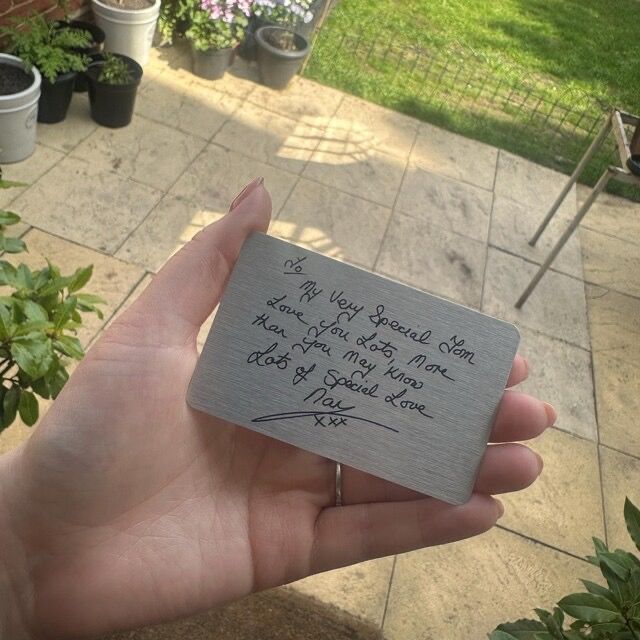 To
My Very Special Tom
Love You Lots, More
than You May Know
Lots of Special Love
Nan
xxx